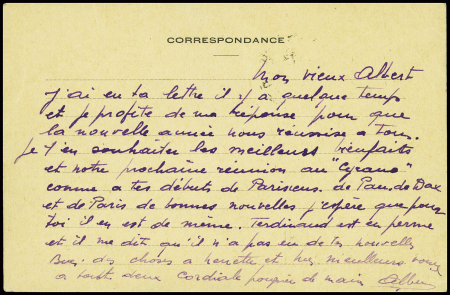 CORRESPONDANCE
Mon vieux Albert
J'ai eu ta lettre il y a quelque temps
et je profite de ma réponse pour que
la nouvelle année nous réunisse à tous.
Je t'en souhaite les meilleurs bienfaits
et notre prochaine réunion au "Cyrano"
comme à tes débuts de Parisiens. de Pau, de Dax
et de Paris de bonnes nouvelles j'espère que pour
toi il en est de même. Ferdinand est en perme
et il me dit qu'il n'a pas eu de tes nouvelles
Bien des choses à et mes meilleurs voeux
à tous deux Cordiale poignée de main